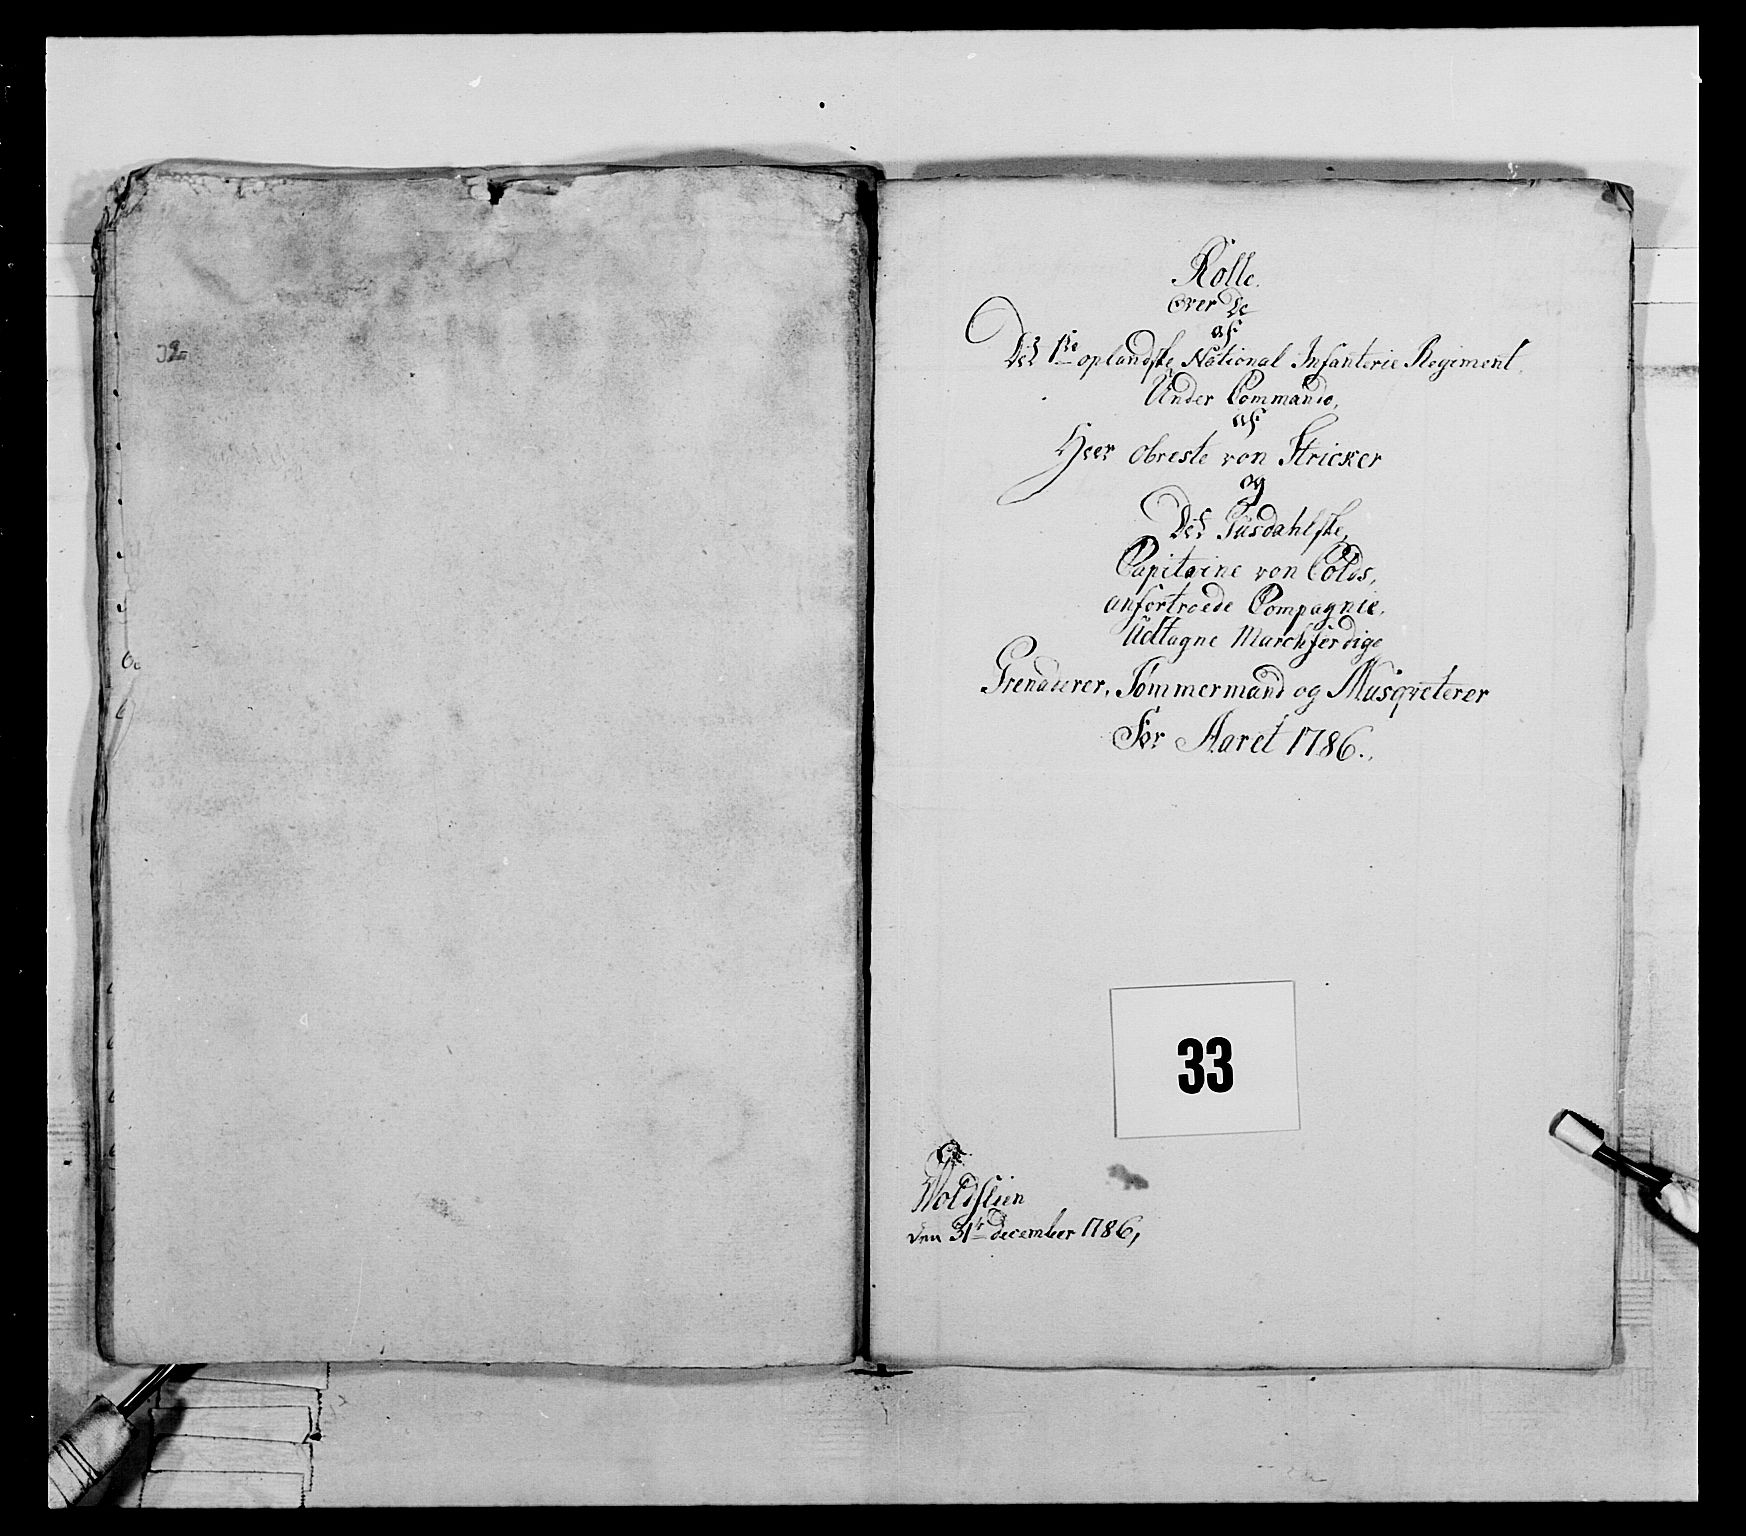 Rolle.
over de
af
Det 1te oplandske National Infanterie Regiment,
Under Commando,
af
Herr Obreste von Stricker
og
Det Gusdahlske,
Capitaine von Colds,
anfortroede Compagnie,
Udtagne Marchferdige
Grenaderer, Tømmermænd og Musqveterer
For Aaret 1786.
33
Woldslien
den 31te december 1786,